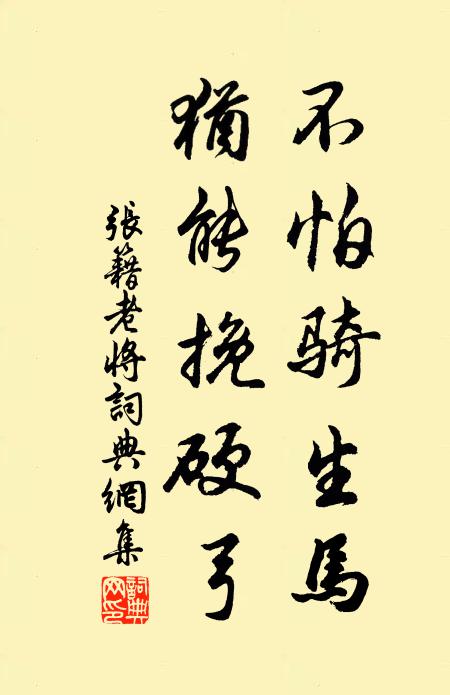 不怕騎生馬
猶能挽硬弓
張籍老將詞典網集
詞典網印